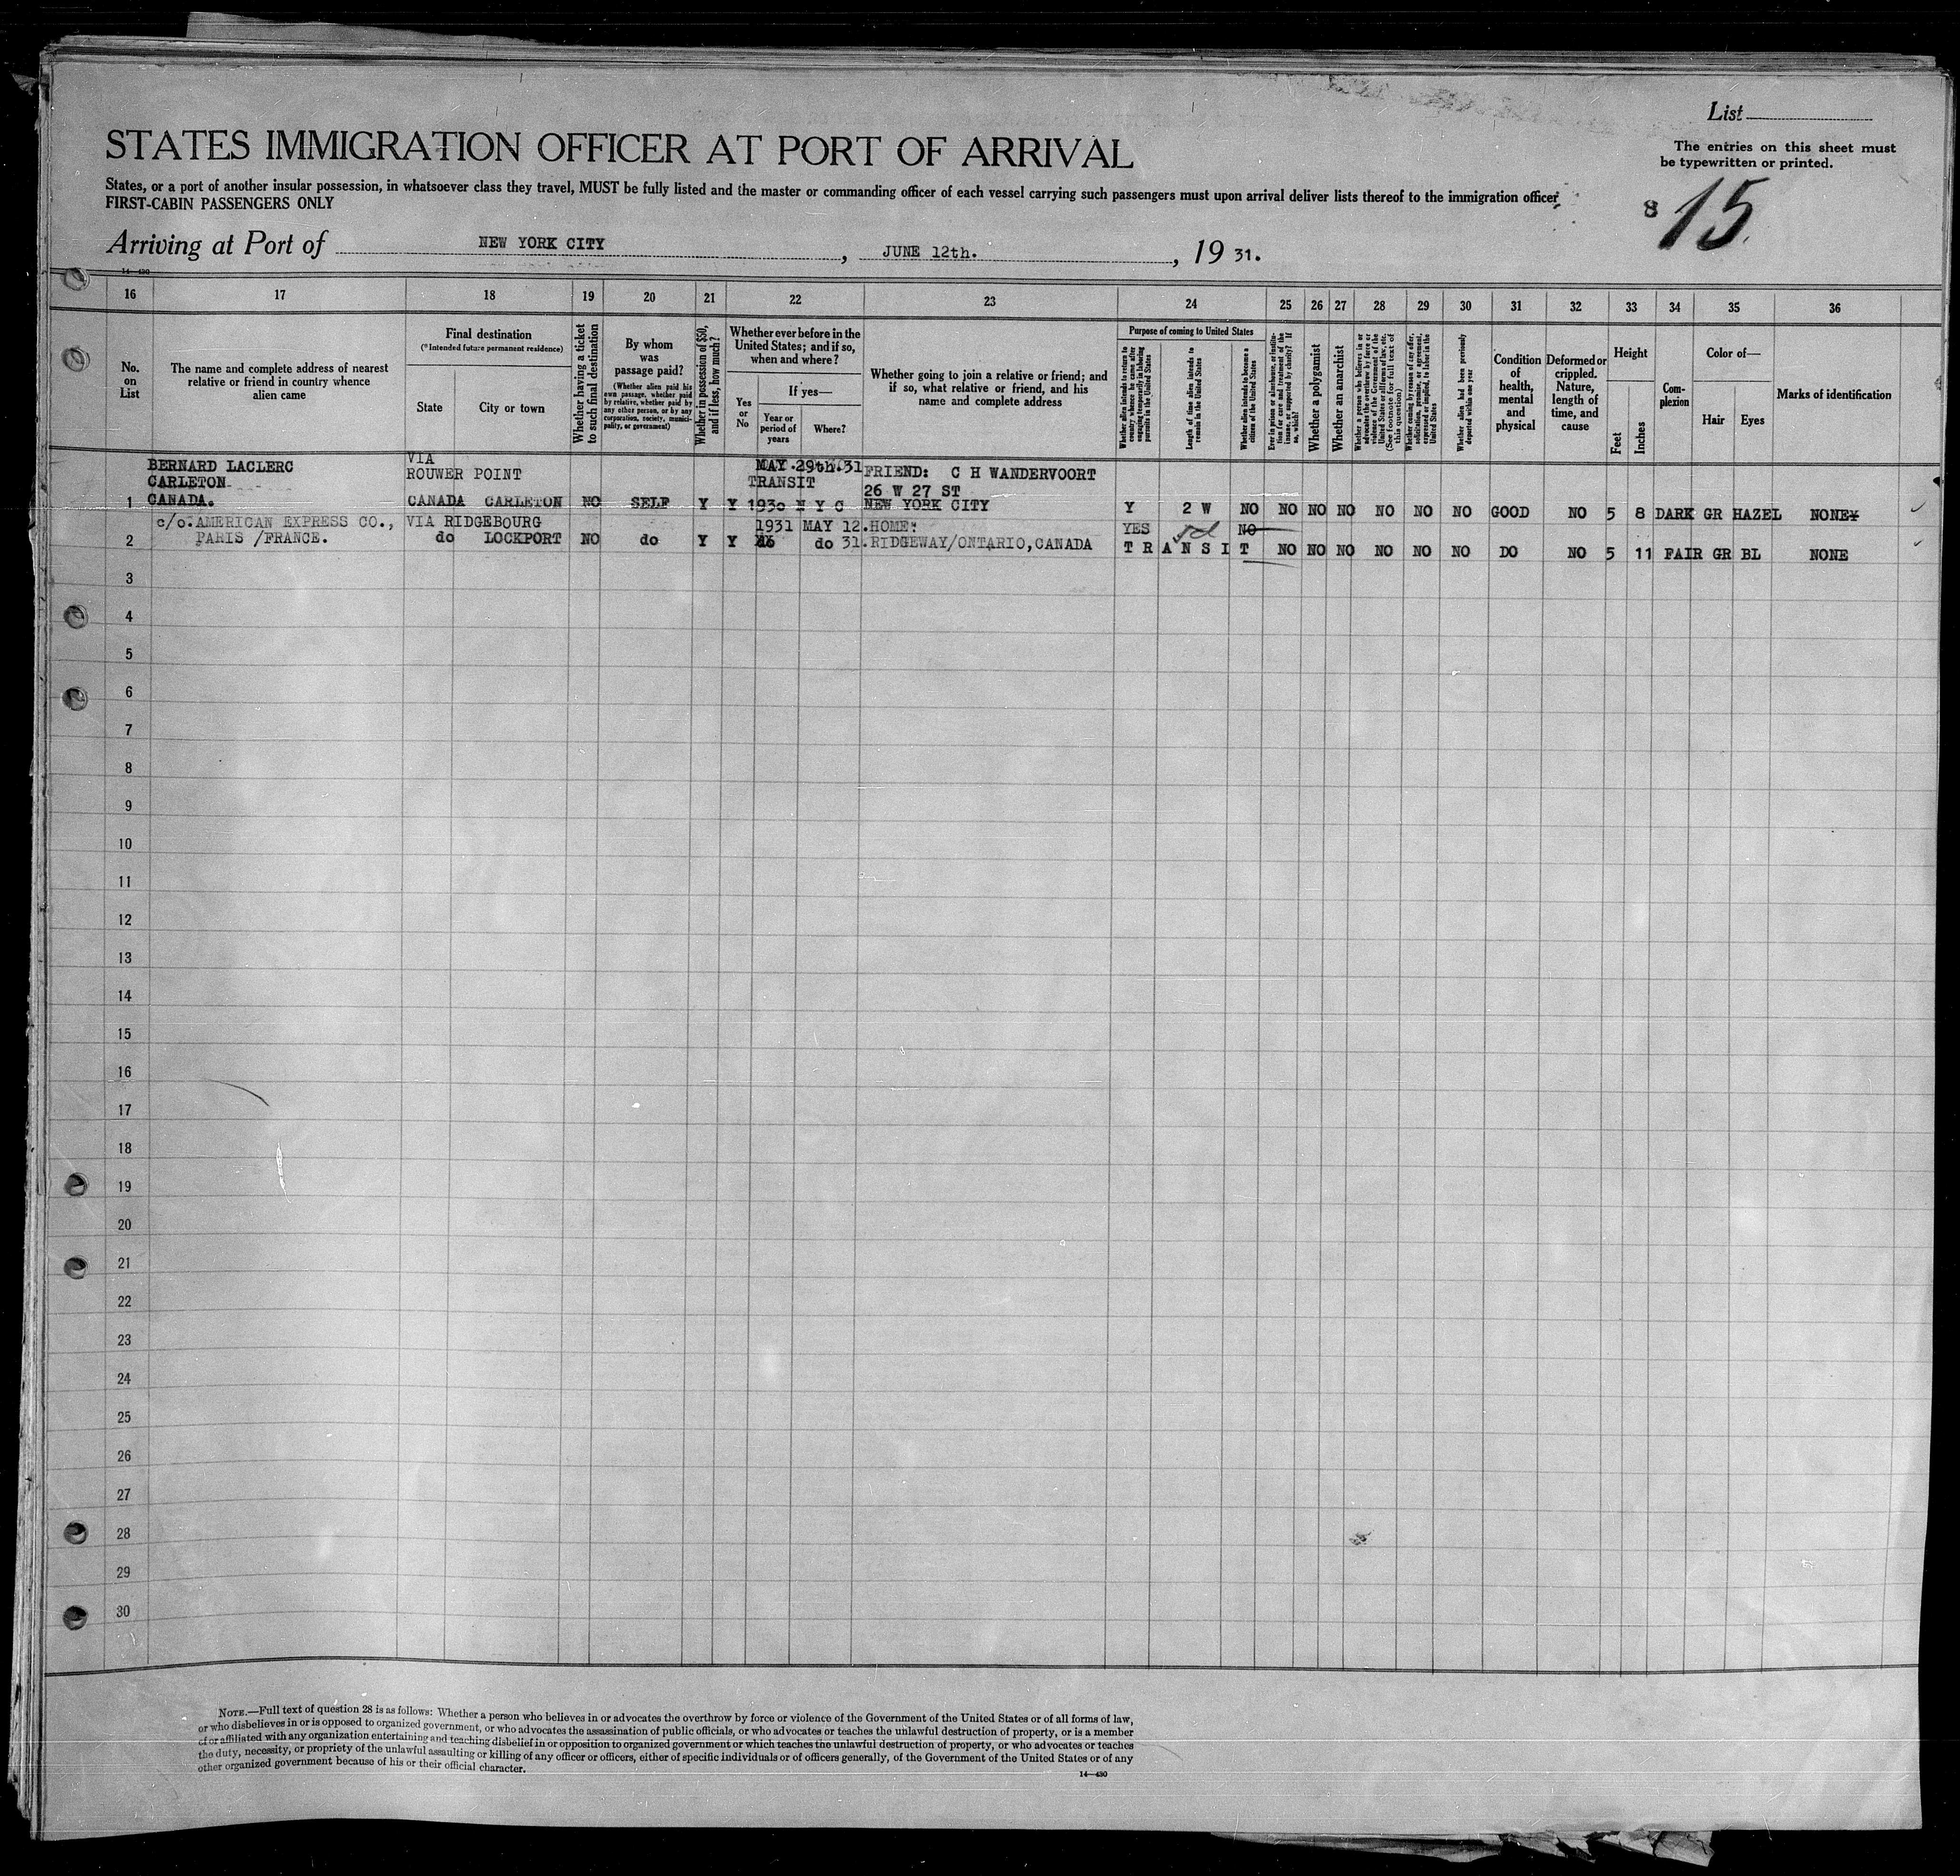 List
The entries on this sheet must
be typewritten or printed.
STATES IMMIGRATION OFFICER AT PORT OF ARRIVAL
States, or a port of another insular possession, in whatsoever class they travel, MUST be fully listed and the master or commanding officer of each vessel carrying such passengers must upon arrival deliver lists thereof to the immigration officer
FIRST-CABIN PASSENGERS ONLY
8 15
Arriving at Port of NEW YORK CITY, JUNE 12th., 19 31.
14—430
16 17 18 19 20 21 22 23 24 25 26 27 28 29 30 31 32 33 34 35 36
No. on List
The name and complete address of nearest relative or friend in country whence alien came
Final destination
(*Intended future permanent residence)
State
City or town
Whether having a ticket to such final destination
By whom was passage paid?
(Whether alien paid his own passage, whether paid by relative, whether paid by any other person, or by any corporation, society, municipality, or government)
Whether in possession of $50, and if less, how much?
Whether ever before in the United States; and if so, when and where?
Yes or No
If yes—
Year or period of years
Where?
Whether going to join a relative or friend; and if so, what relative or friend, and his name and complete address
Purpose of coming to United States
Whether alien intends to return to country whence he came after engaging temporarily in laboring pursuits in the United States
Length of time alien intends to remain in the United States
Whether alien intends to become a citizen of the United States
Ever in prison or almshouse, or institution for care and treatment of the insane, or supported by charity? If so, which?
Whether a polygamist
Whether an anarchist
Whether a person who believes in or advocates the overthrow by force or violence of the Government of the United States or all forms of law, etc. (See footnote for full text of this question)
Whether coming by reason of any offer, solicitation, promise, or agreement, expressed or implied, to labor in the United States
Whether alien had been previously deported within one year
Condition of health, mental and physical
Deformed or crippled. Nature, length of time, and cause
Height
Feet
Inches
Complexion
Color of—
Hair
Eyes
Marks of identification
BERNARD LACLERC VIA MAY.29th.31 FRIEND: C H WANDERVOORT
CARLETON ROUWER POINT TRANSIT 26 W 27 ST
1 CANADA. CANADA CARLETON NO SELF Y Y 1930 N Y C NEW YORK CITY Y 2 W NO NO NO NO NO NO NO GOOD NO 5 8 DARK GR HAZEL NONE
c/o.AMERICAN EXPRESS CO., VIA RIDGEBOURG 1931 MAY 12. HOME: YES NO
2 PARIS /FRANCE. do LOCKPORT NO do Y Y do 31. RIDGEWAY/ONTARIO,CANADA TRANSIT NO NO NO NO NO NO DO NO 5 11 FAIR GR BL NONE
3
4
5
6
7
8
9
10
11
12
13
14
15
16
17
18
19
20
21
22
23
24
25
26
27
28
29
30
NOTE.—Full text of question 28 is as follows: Whether a person who believes in or advocates the overthrow by force or violence of the Government of the United States or of all forms of law,
or who disbelieves in or is opposed to organized government, or who advocates the assassination of public officials, or who advocates or teaches the unlawful destruction of property, or is a member
of or affiliated with any organization entertaining and teaching disbelief in or opposition to organized government or which teaches the unlawful destruction of property, or who advocates or teaches
the duty, necessity, or propriety of the unlawful assaulting or killing of any officer or officers, either of specific individuals or of officers generally, of the Government of the United States or of any
other organized government because of his or their official character.
14—430